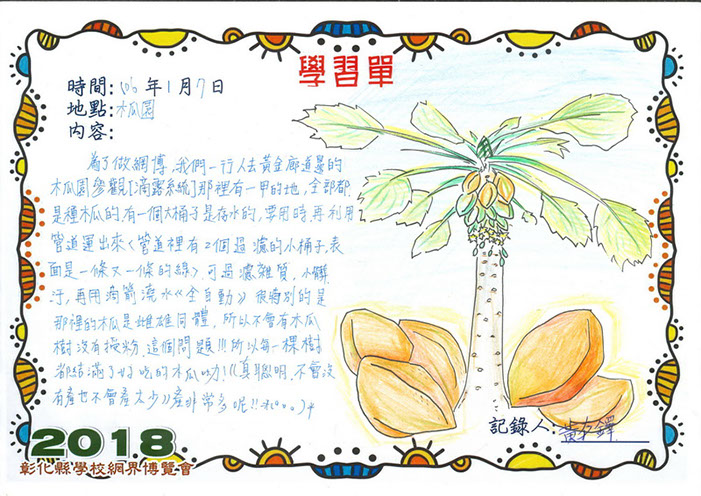 學習單
時間:106年1月7日
地點:木瓜園
內容:
為了做網博,我們一行人去黃金廊道邊的
木瓜園參觀[滴灌系統]那裡有一甲的地,全部都
是種木瓜的,有一個大桶子是存水的,要用時,再利用
管道運出來<管道裡有2個過濾的小桶子,表
面是一條又一條的線>,可過濾雜質,小髒
汙,再用滴箭流水《全自動》很特別的是
那裡的木瓜是雌雄同體,所以不會有木瓜
樹沒有授粉這個問題!!!所以每一棵樹
都結滿了好吃的木瓜ㄌㄡ!《真聰明,不會沒
有產也不會產太少》產非常多呢!!
記錄人:黃
2018
彰化縣學校網界博覽會